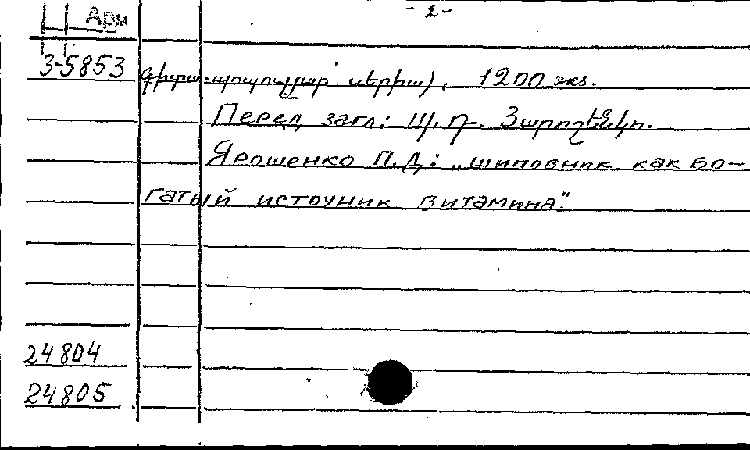 Арм
- 2 -
3-5853 գիտա-պոպուլյար սերիա), 1200 экз.
Перед загл: Պ. Դ. Յարոշենկո.
Ярошенко П.Д: „шиповник как бо-
гатый источник витамина"
24804
24805